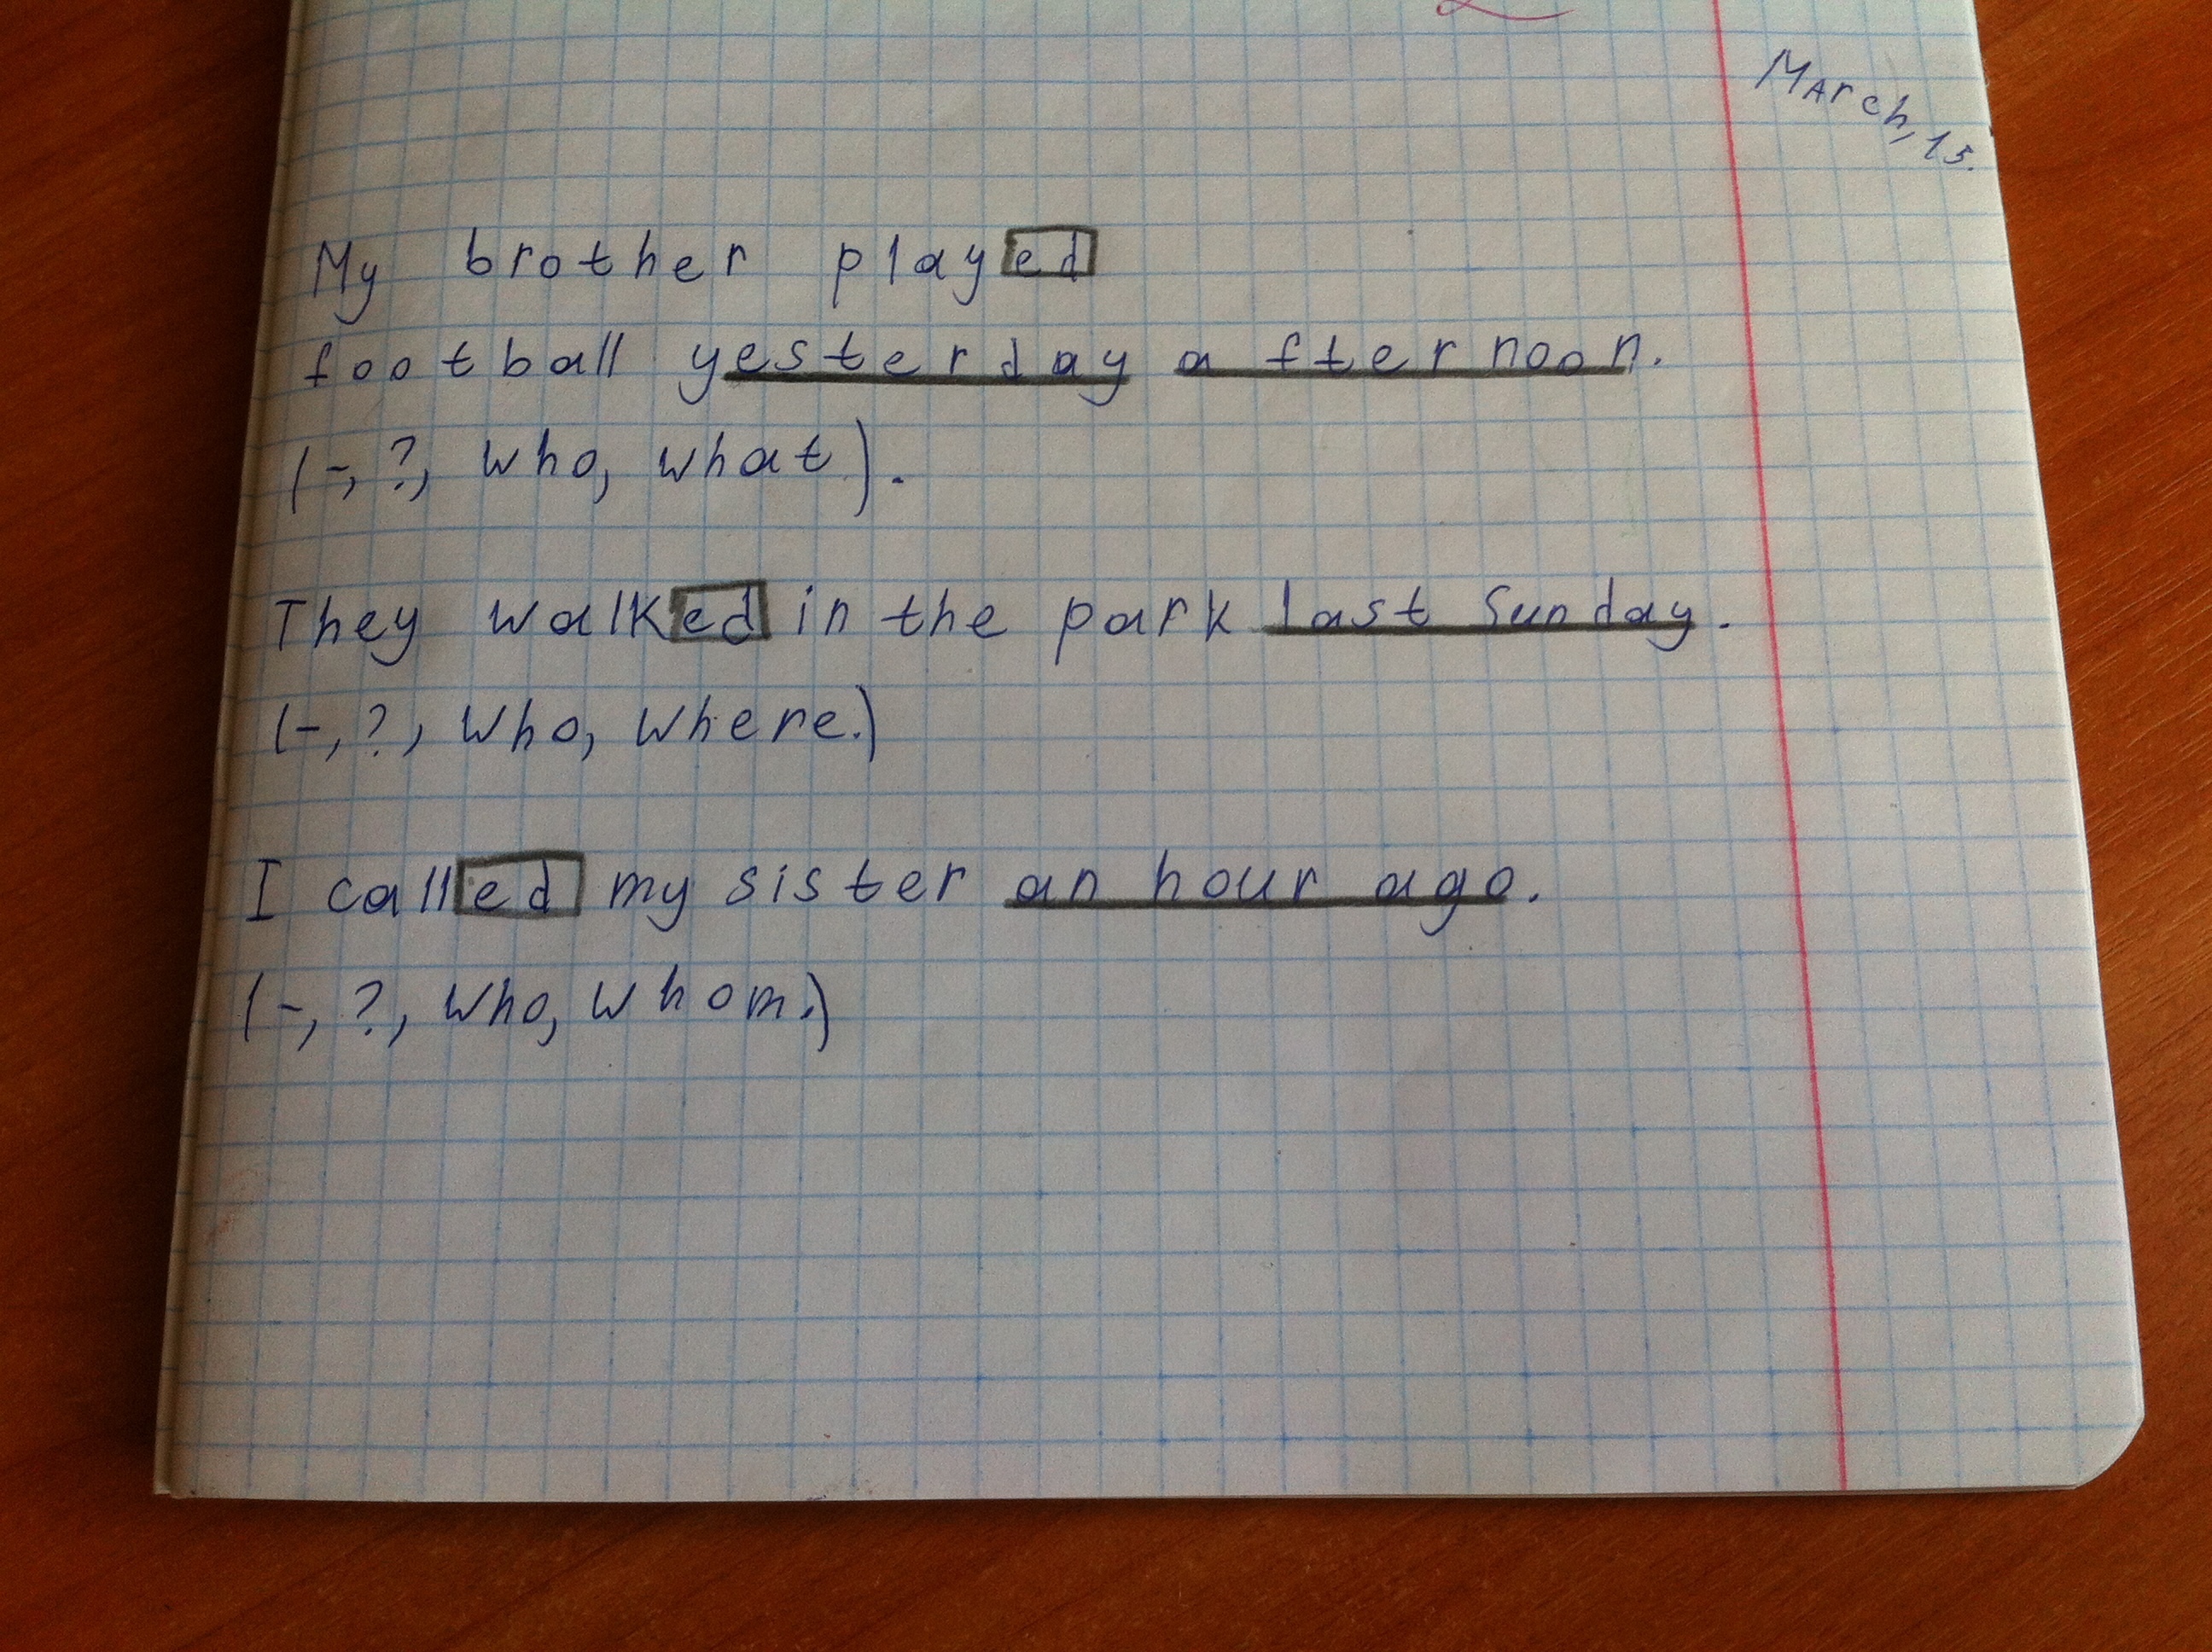 March, 15.
My brother played
football yesterday afternoon.
(-, ?, who, what).
They walked in the park last Sunday.
(-, ?, who, where.)
I called my sister an hour ago.
(-, ?, who, whom.)